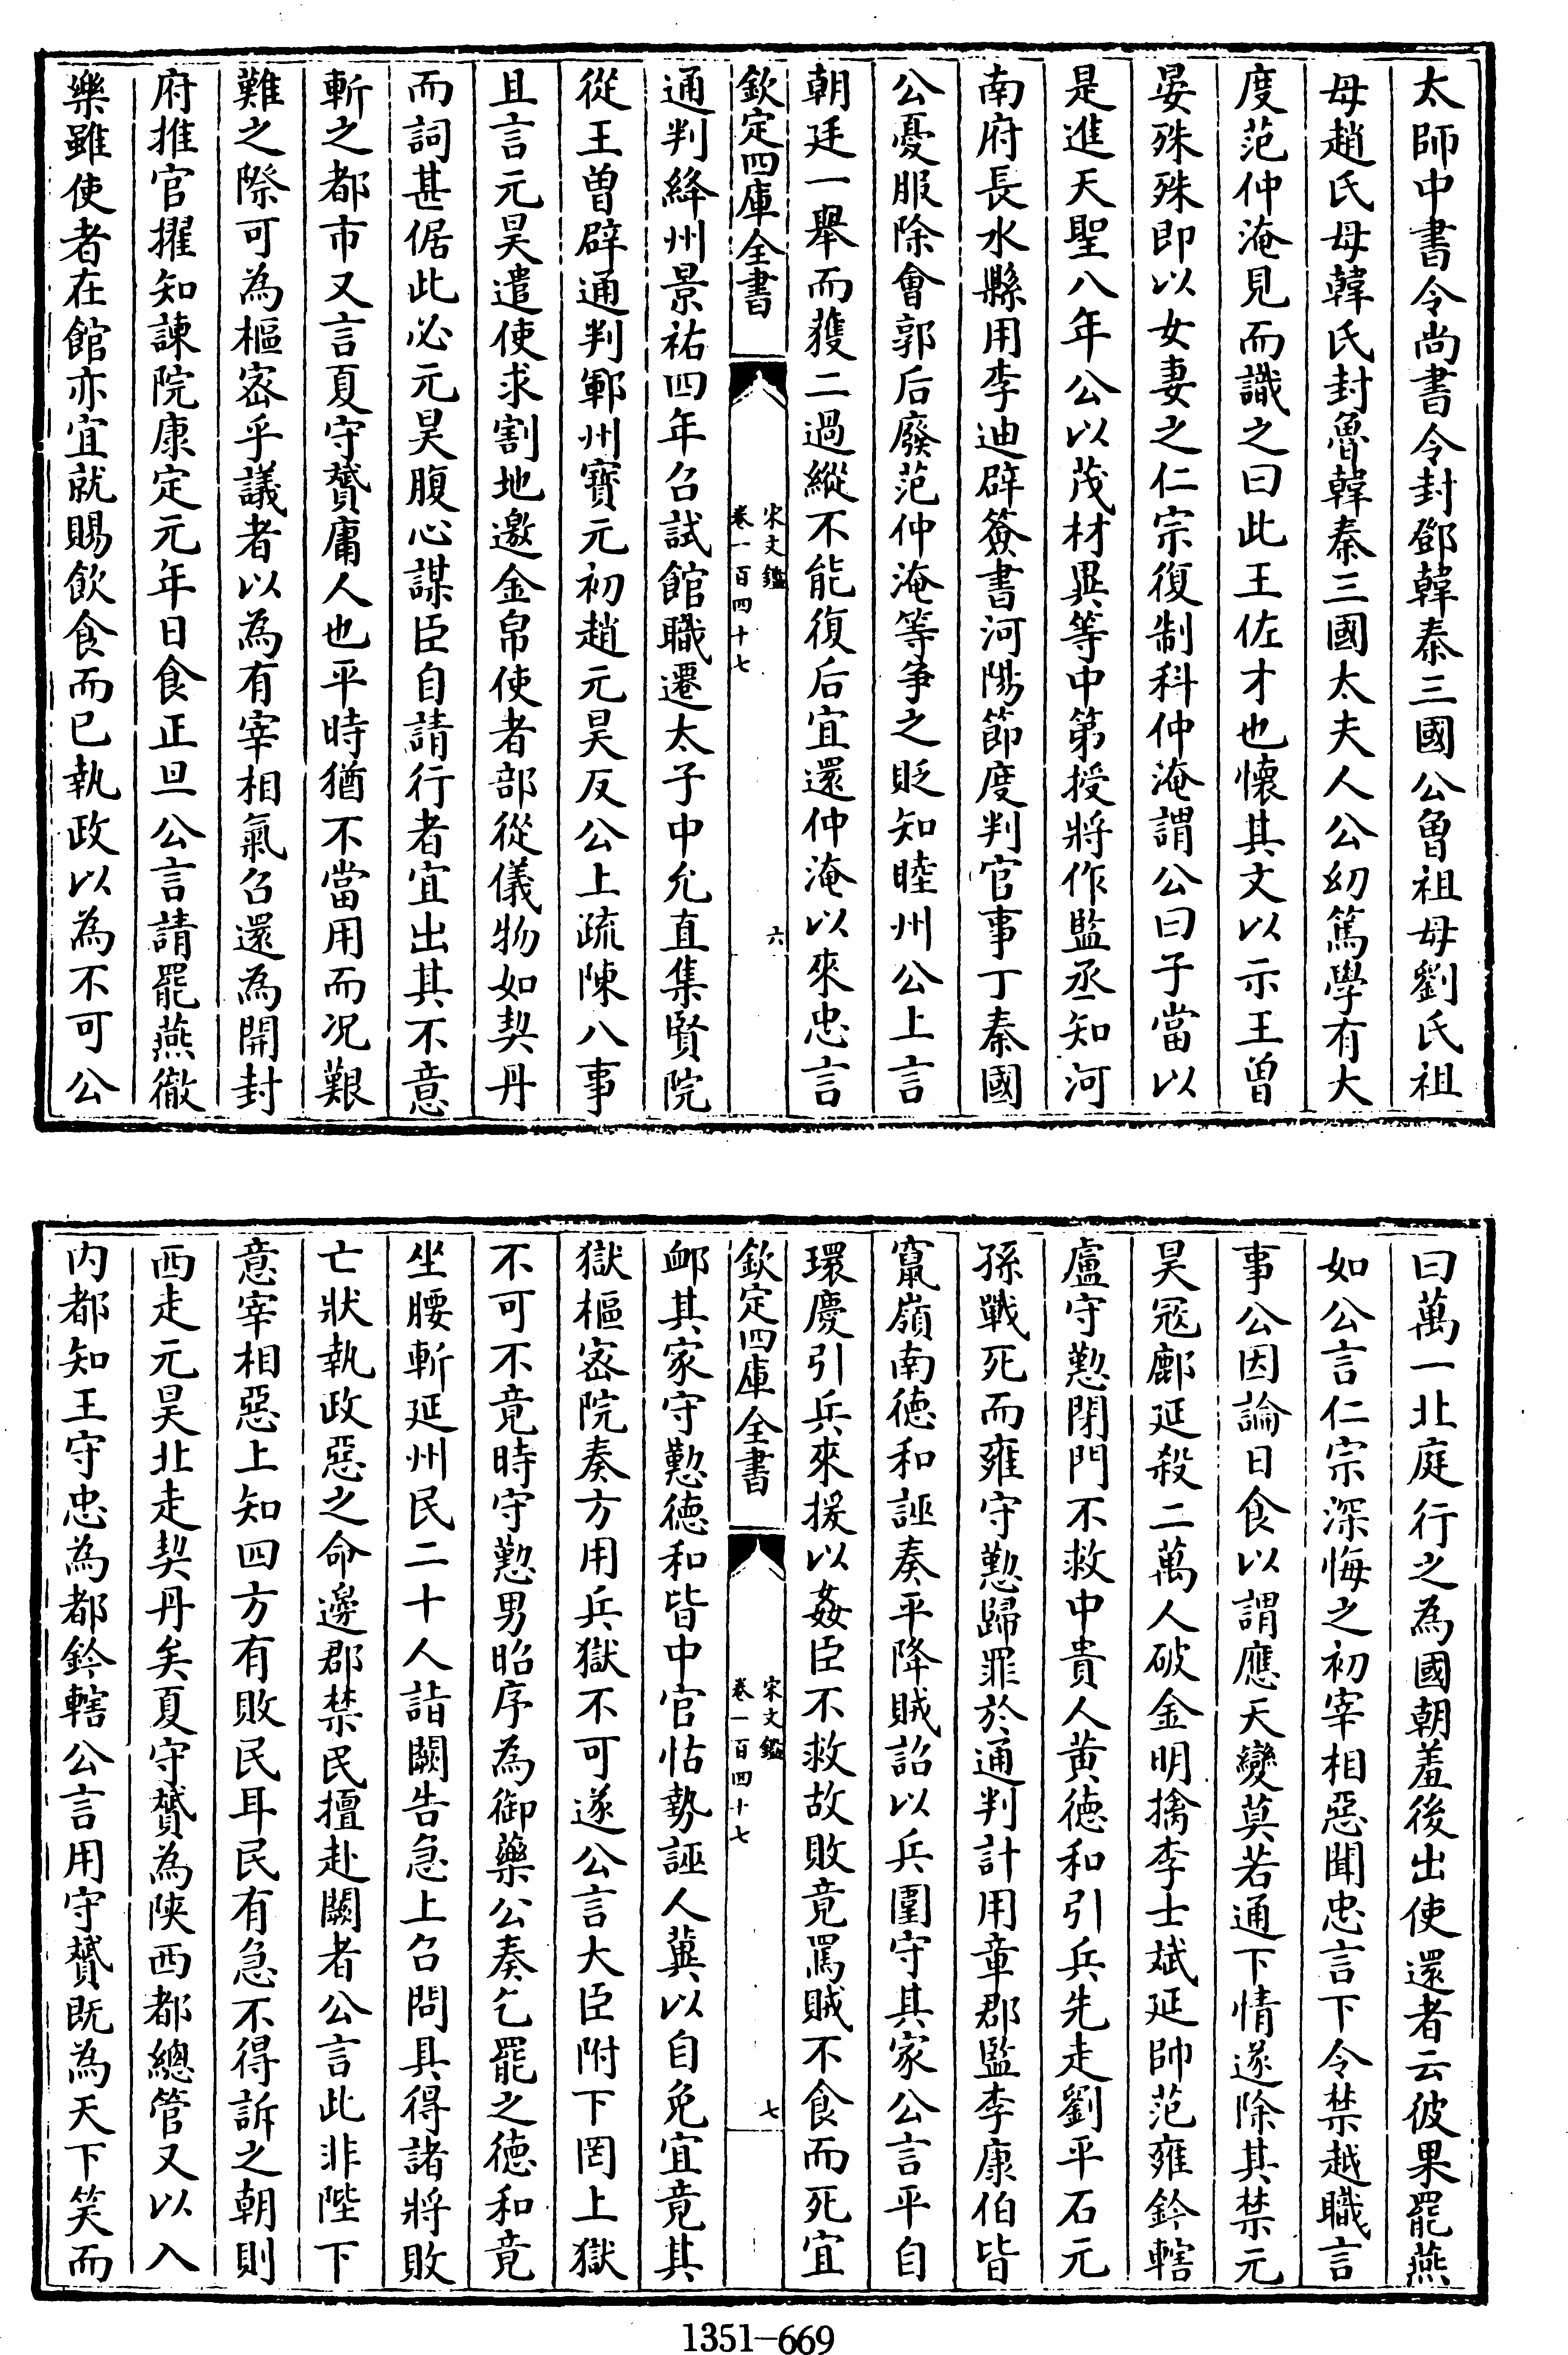 太師中書令尚書令封鄧韓秦三國公曾祖母劉氏祖
母趙氏母韓氏封魯韓秦三國太夫人公幼篤學有大
度范仲淹見而識之曰此王佐才也懷其文以示王曾
晏殊殊即以女妻之仁宗復制科仲淹謂公曰子當以
是進天聖八年公以茂材異等中第授將作監丞知河
南府長水縣用李迪辟簽書河陽節度判官事丁秦國
公憂服除會郭后廢范仲淹等争之貶知睦州公上言
朝廷一舉而獲二過縱不能復后宜還仲淹以來忠言
欽定四庫全書
宋文鑑
卷一百四十七
六
通判絳州景祐四年召試館職遷太子中允直集賢院
從王曾辟通判鄆州寶元初趙元昊反公上疏陳八事
且言元昊遣使求割地邀金帛使者部從儀物如契丹
而詞甚倨此必元昊腹心謀臣自請行者宜出其不意
斬之都市又言夏守贇庸人也平時猶不當用而况艱
難之際可為樞宻乎議者以為有宰相氣召還為開封
府推官擢知諫院康定元年日食正旦公言請罷燕徹
樂雖使者在館亦宜就賜飲食而已執政以為不可公
曰萬一北庭行之為國朝羞後出使還者云彼果罷燕
如公言仁宗深悔之初宰相惡聞忠言下令禁越職言
事公因論日食以謂應天變莫若通下情遂除其禁元
昊寇鄜延殺二萬人破金明擒李士斌延帥范雍鈐轄
盧守懃閉門不救中貴人黄徳和引兵先走劉平石元
孫戰死而雍守懃歸罪於通判計用章郡監李康伯皆
竄嶺南徳和誣奏平降賊詔以兵圍守其家公言平自
環慶引兵來援以姦臣不救故敗竟罵賊不食而死宜
欽定四庫全書
宋文鑑
卷一百四十七
七
䘏其家守懃徳和皆中官怙勢誣人冀以自免宜竟其
獄樞宻院奏方用兵獄不可遂公言大臣附下罔上獄
不可不竟時守懃男昭序為御藥公奏乞罷之徳和竟
坐腰斬延州民二十人詣闕告急上召問具得諸將敗
亡狀執政惡之命邊郡禁民擅赴闕者公言此非陛下
意宰相惡上知四方有敗民耳民有急不得訴之朝則
西走元昊北走契丹矣夏守贇為陝西都總管又以入
内都知王守忠為都鈐轄公言用守贇既為天下笑而
1351-669